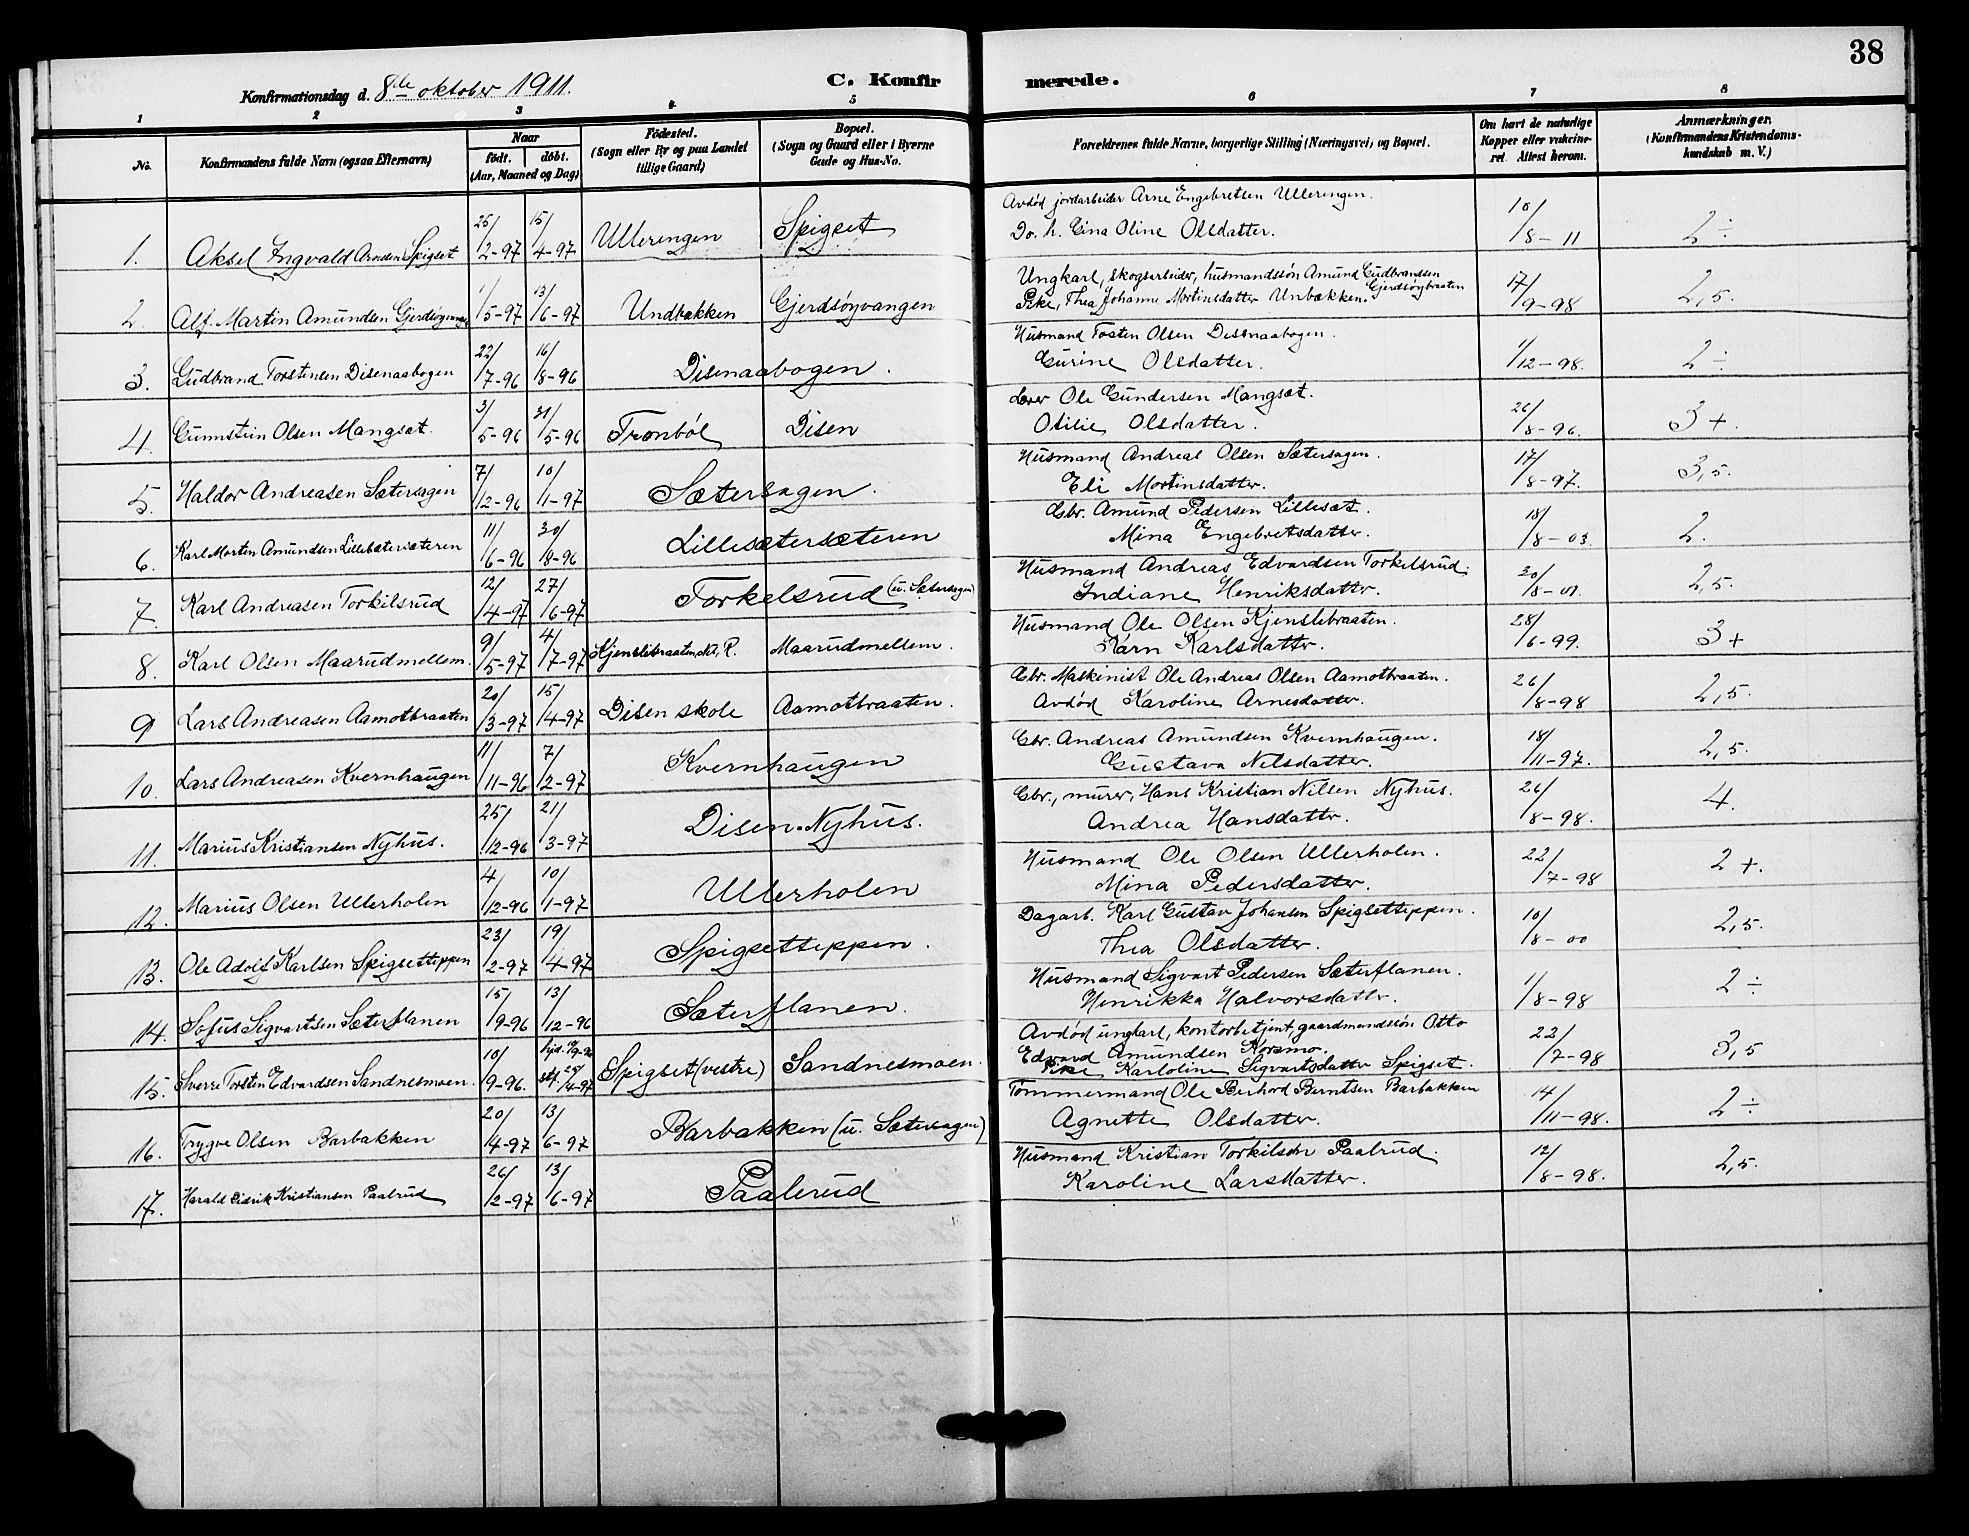 38
Konfirmationsdag d. 8de oktober 1911.
C. Konfirmerede.
1 2 3 4 5 6 7 8
No. | Konfirmandens fulde Navn (ogsaa Efternavn) | Naar født. døbt. (Aar, Maaned og Dag) | Fødested. (Sogn eller By og paa Landet tillige Gaard) | Bopæl. (Sogn og Gaard eller i Byerne Gade og Hus-No. | Forældrenes fulde Navne, borgerlige Stilling (Næringsvei) og Bopæl. | Om havt de naturlige Kopper eller vakcineret. Attest herom. | Anmærkninger. (Konfirmandens Kristendomskundskab m. V.)
1. Aksel Ingvald Arnesen Spigset 25/2-97 15/4-97 Ullerengen Spigset Avdød jordarbeider Arne Engebretsen Ullerengen. 10/8-11 2÷
Do. h. Gina Oline Olsdatter.
2 Alf. Martin Amundsen Gjerdsøyvangen 1/5-97 13/6-97 Undbakken Gjerdsøyvangen Ungkarl, skogsarbeider, husmandssøn Amund Gudbrandsen Gjerdsøybraaten 17/9-98 2,5.
Pike, Thea Johanne Mortinsdatter Unbækken.
3. Gudbrand Torstensen Disenaabogen 22/7-96 16/8-96 Disenaabogen. Husmand Tosten Olsen Disenaabogen. 1/12-98. 2÷
Gurine Olsdatter.
4. Gunnstein Olsen Mangset. 3/5-96 31/5-96 Tronbøl Disen Lærer Ole Gundersen Mangset. 26/8-96. 3+.
Otilie Olsdatter.
5. Haldor Andreasen Sætersagen 7/12-96 10/1-97 Sætersagen. Husmand Andreas Olsen Sætersagen. 17/8-97. 3,5.
Eli Mortinsdatter.
6. Karl Morten Amundsen Lillesætersæteren 11/6-96 30/8-96 Lillesætersæteren Gbr. Amund Pedersen Lillesæt. 18/8-03. 2.
Mina Engebretsdatter.
7. Karl Andreasen Torkilsrud 12/4-97 27/6-97 Torkelsrud (u. Sætersagen) Husmand Andreas Edvardsen Torkelsrud. 30/8-01. 2,5.
Indiane Henriksdatter.
8. Karl Olsen Maarudmellem. 9/5-97 4/7-97 Kjenslebraaten, R. Maarudmellem. Husmand Ole Olsen Kjenslebraaten. 28/6-99. 3+
Karn Karlsdatter.
9 Lars Andreasen Aamotbraaten 20/3-97 15/4-97 Disen skole Aamotbraaten. Gbr. Maskinist Ole Andreas Olsen Aamotbraaten. 26/8-98 2,5.
Avdød Karoline Arnesdatter.
10. Lars Andreasen Kvernhaugen 11/11-96 7/2-97 Kvernhaugen Gbr. Andreas Amundsen Kvernhaugen. 18/11-97. 2,5.
Gustava Nilsdatter.
11. Marius Kristiansen Nyhus. 25/12-96 21/3-97 Disen-Nyhus. Gbr., murer, Hans Kristian Nilsen Nyhus. 26/8-98. 4.
Andrea Hansdatter.
12. Marius Olsen Ullerholen 4/12-96 10/1-97 Ullerholen Husmand Ole Olsen Ullerholen. 22/7-98 2+.
Mina Pedersdatter.
13. Ole Adolf Karlsen Spigseteppen 23/2-97 19/4-97 Spigseteppen. Dagarb. Karl Gustav Johansen Spigseteppen. 10/8-00 2,5.
Thea Olsdatter.
14. Sofus Sigvartsen Sæterflanen 15/9-96 13/12-96 Sæterflanen. Husmand Sigvart Pedersen Sæterflanen. 1/8-98 2÷
Henrikka Halvorsdatter.
15. Sverre Torsten Edvardsen Sandnesmoen. 10/9-96. hjd. stf. 4-97 Spigset (vestre) Sandnesmoen. Avdød ungkarl, kontorbetjent, gaardmandssøn Otto 22/7-98 3,5
Edvard Amundsen Korsmo.
Pike Karloline Sigvartsdatter Spigset.
16. Trygve Olsen Barbakken 20/4-97 13/6-97 Barbakken (u. Sætersagen) Tømmermand Ole Berhard Berntsen Barbakken 14/11-98. 2÷
Agnette Olsdatter.
17. Harald Didrik Kristiansen Paalrud 26/2-97 13/6-97 Paalerud Husmand Kristian Torkilsen Paalrud. 12/8-98. 2,5.
Karoline Larsdatter.